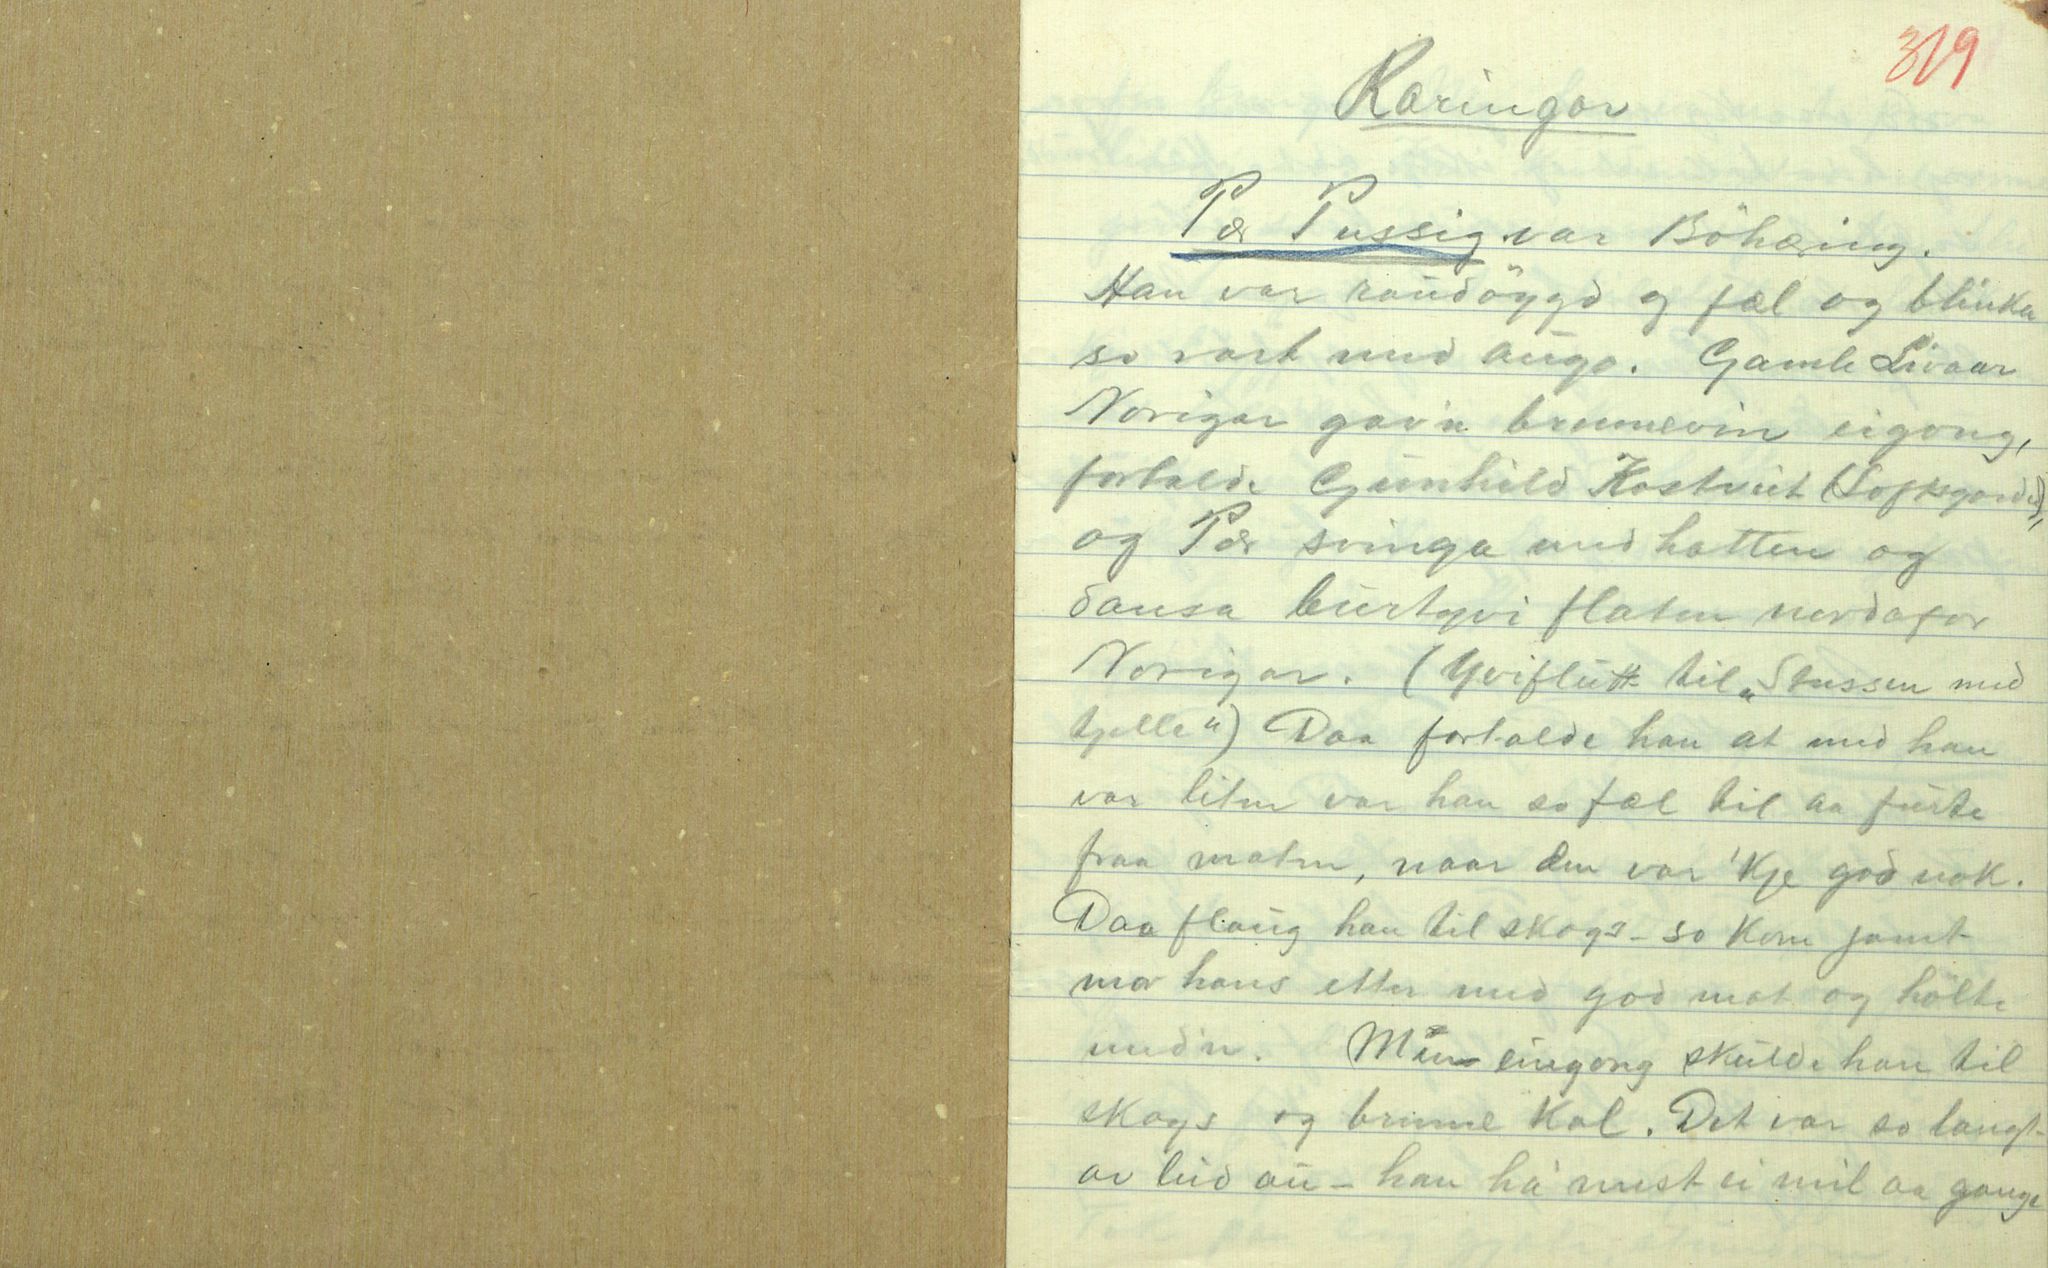 319
Ræringar
Pær Pussig var Böhæring.
Han var raudöygd og fæl og blinka
so vart med augo. Gamle Sivaar
Norigar gav'n brennevin eigong,
fortalde Gunhild Kostveit (Loftsgarden),
og Pær svinga med hatten og
dansa burtyvi flaten nordafor
Norigar. (Yviflutt til "Stussen med
tjelle") Daa fortalde han at med han
var liten var han so fæl til aa furte
fraa maten, naar den var 'kje god nok.
Daa flaug han til skogs - so kom jamt
mor hans etter med god mat og hölte
med'n. Men eingong skulde han til
skogs og brenne kol. Det var so langt
av leid au - han há mest ei mil aa gange